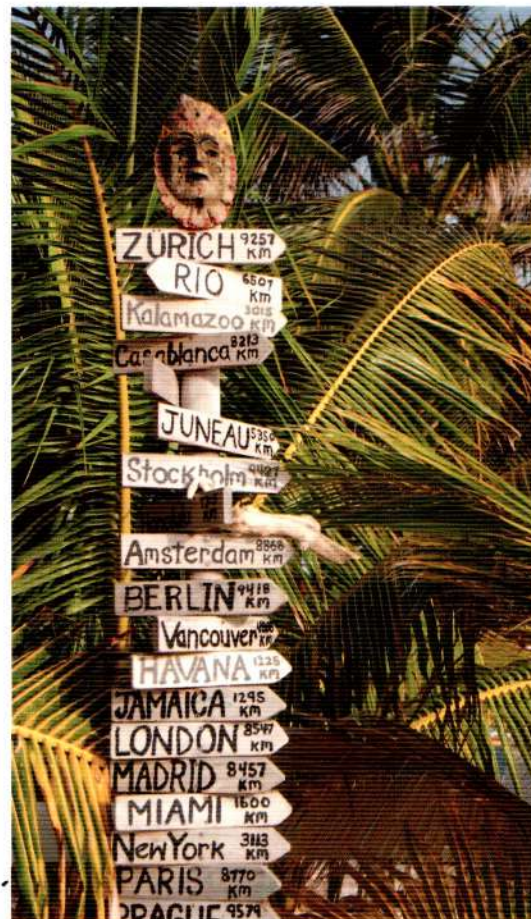 ZÜRICH 9257 KM
RIO 6507 KM
Kalamazoo 3015 KM
Casablanca 8213 KM
JUNEAU 5350 KM
Stockholm 9427 KM
Amsterdam 8868 KM
BERLIN 9418 KM
Vancouver KM
HAVANA 1225 KM
JAMAICA 1295 KM
LONDON 8547 KM
MADRID 8457 KM
MIAMI 1600 KM
New York 3113 KM
PARIS 8770 KM
PRAGUE 9579